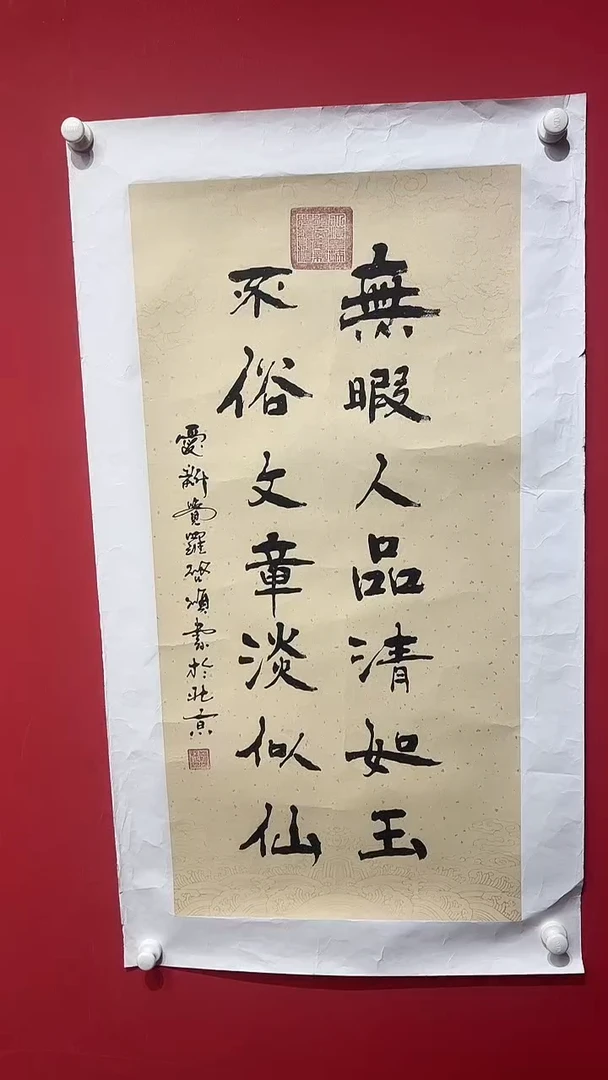 無暇人品清如玉
不俗文章淡似仙
愛新覺羅啓頌書於北京